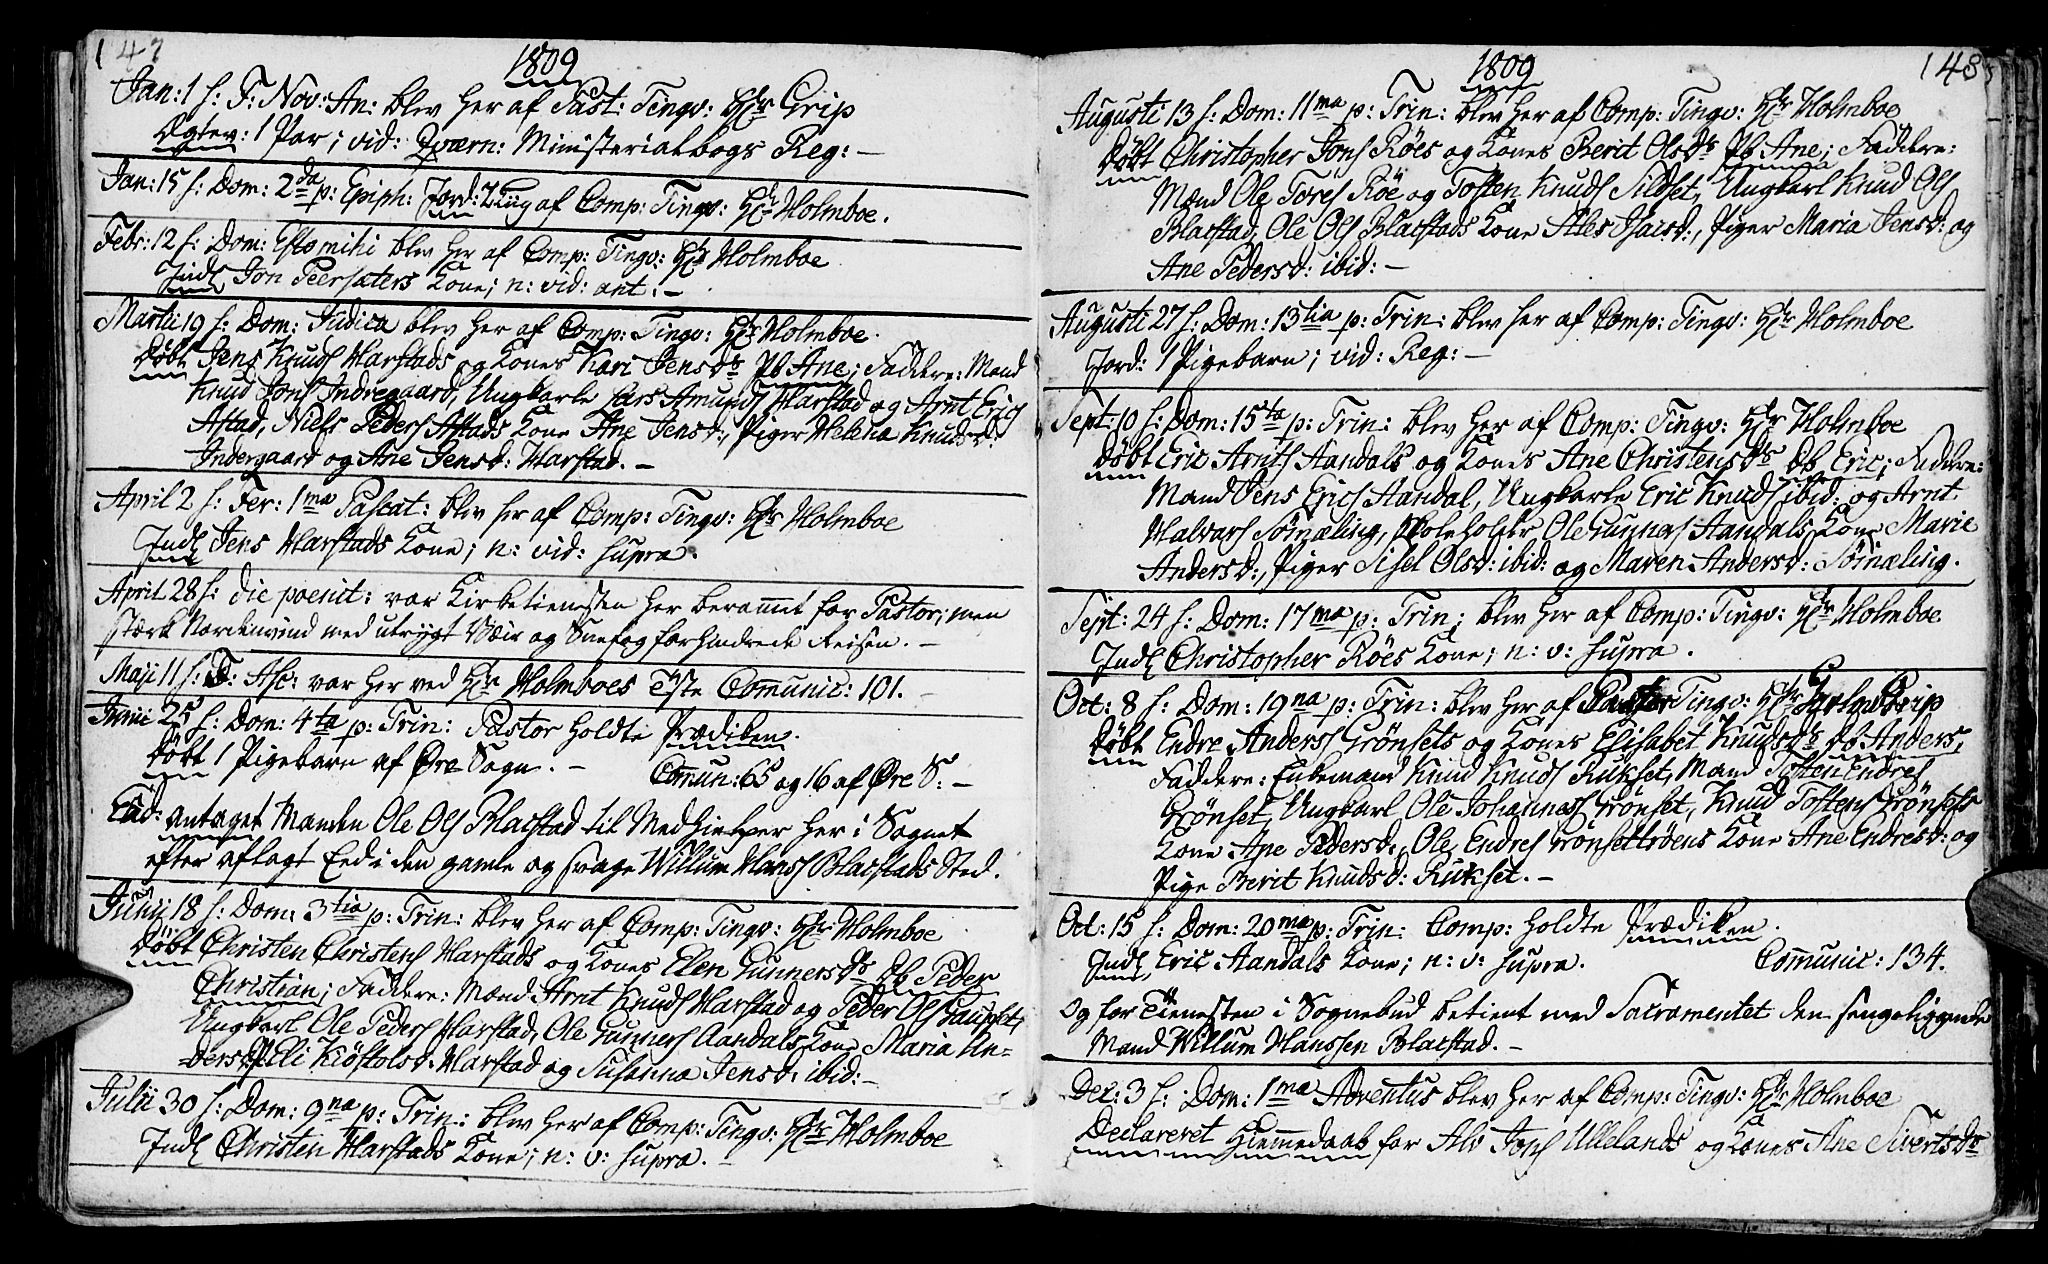 147
1809
Jan: 1 f: F: Nov: An: blev her af Past: Tingv: Hr Grip
Ægtev: 1 Par; vid: Qværn: Ministerialbogs Reg: —
Jan: 15 f: Dom: 2da p: Epiph: Jord: af Comp: Tingv: Hr Holmboe.
Febr: 12 f: Dom: Estomihi blev her af Comp: Tingv: Hr Holmboe
Indl Jon Peersæters Kone; n: vid: ant: —
Martii 19 f: Dom: Judica blev her af Comp: Tingv: Hr Holmboe.
Døbt Jens Knuds Harstads og Kones Kari Jensdr Pb Ane; Faddere: Mænd
Knud Jons Indregaard, Ungkarle Lars Amunds Harstad og Arnt Erics
Astad, Niels Peders Astads Kone Ane Jensd:, Piger Helena Knudsd:
Indergaard og Ane Jensd: Harstad. —
April 2 f: Fer: 1ma Pascat: blev her af Comp: Tingv: Hr Holmboe
Indl Jens Harstads Kone; n: vid: supra.
April 28 f: die poenit: var Kirketienesten her beramt for Pastor; men
stærk Nordenvind med utrygt Væir og Sneefog forhindrede Reisen. —
Maji 11 f: F: Asc: var her ved Hr Holmboes Tieneste Communic: 101. —
Junii 25 f: Dom: 4ta p: Trin: Pastor holdte Prædiken.
Døbt 1 Pigebarn af Øre Sogn. — Comun: 65 og 16 af Øre S: —
Eod: antaget Manden Ole Ols Blakstad til Medhielper her i Sognet
efter aflagt Eed i den gamle og svage Willum Hans Blakstads Sted.
Junii 18 f: Dom: 3tia p: Trin: blev her af Comp: Tingv: Hr Holmboe
Døbt Christen Christens Harstads og Kones Elen Gunnersdr Db Peder
Christian; Faddere: Mænd Arnt Knuds Harstad og Peder Ols Gaupset,
Ungkarl Ole Peders Harstad, Ole Gunners Aandals Kone Maria An-
dersd: P. Eli Kiøstolsd: Harstad og Susanna Jensd: ibid: —
Julii 30 f: Dom: 9na p: Trin: blev her af Comp: Tingv: Hr Holmboe
Indl Christen Harstads Kone; n: v: supra. —
148
1809
Augusti 13 f: Dom: 11ma p: Trin: blev her af Comp: Tingv: Hr Holmboe
Døbt Christopher Jons Røes og Kones Berit Olsdr Pb Ane; Faddere:
Mænd Ole Tores Røe og Tosten Knuds Sildset, Ungkarl Knud Ols
Blakstad, Ole Ols Blakstads Kone Ales Isacsd:, Piger Maria Jensd: og
Ane Pedersd: ibid: —
Augusti 27 f: Dom: 13tia p: Trin: blev her af Comp: Tingv: Hr Holmboe
Jord: 1 Pigebarn; vid: Reg: —
Sept: 10 f: Dom: 15ta p: Trin: blev her af Comp: Tingv: Hr Holmboe
Døbt Eric Arnts Aandals og Kones Ane Christensdr Db Eric; Faddere:
Mænd Jens Erics Aandal, Ungkarle Eric Knuds ibid: og Arnt
Halvars Sørnæling, Skoleholder Ole Gunners Aandals Kone Maria
Andersd:, Piger Sisel Olsd: ibid: og Maren Andersd: Sørnæling.
Sept: 24 f: Dom: 17ma p: Trin: blev her af Comp: Tingv: Hr Holmboe
Indl Christopher Røes Kone; n: v: supra.
Oct: 8 f: Dom: 19na p: Trin: blev her af Pastor Tingv: Hr Grip
Døbt Endre Anders Grønsets og Kones Elisabet Knudsdr Db Anders,
Faddere: Enkemand Knud Knuds Rükset, Mænd Tosten Endres
Grønset, Ungkarl Ole Johanness Grønset, Knud Tostens Grønsets
Kone Ane Pedersd:, Ole Endres Grønsetrøens Kone Ane Endresd: og
Pige Berit Knudsd: Rükset. —
Oct: 15 f: Dom: 20ma p: Trin: Comp: holdte Prædiken.
Indl Eric Aandals Kone; n: v: supra. Comunic: 134.
Og før Tienesten i Sognebud betient med Sacramentet den sengeliggende
Mand Willum Hanssen Blakstad. —
Dec: 3 f: Dom: 1ma Adventus blev her af Comp: Tingv: Hr Holmboe
Declareret Hiemmedaab for Alv Jons Ullelands og Kones Ane Sivertsdr